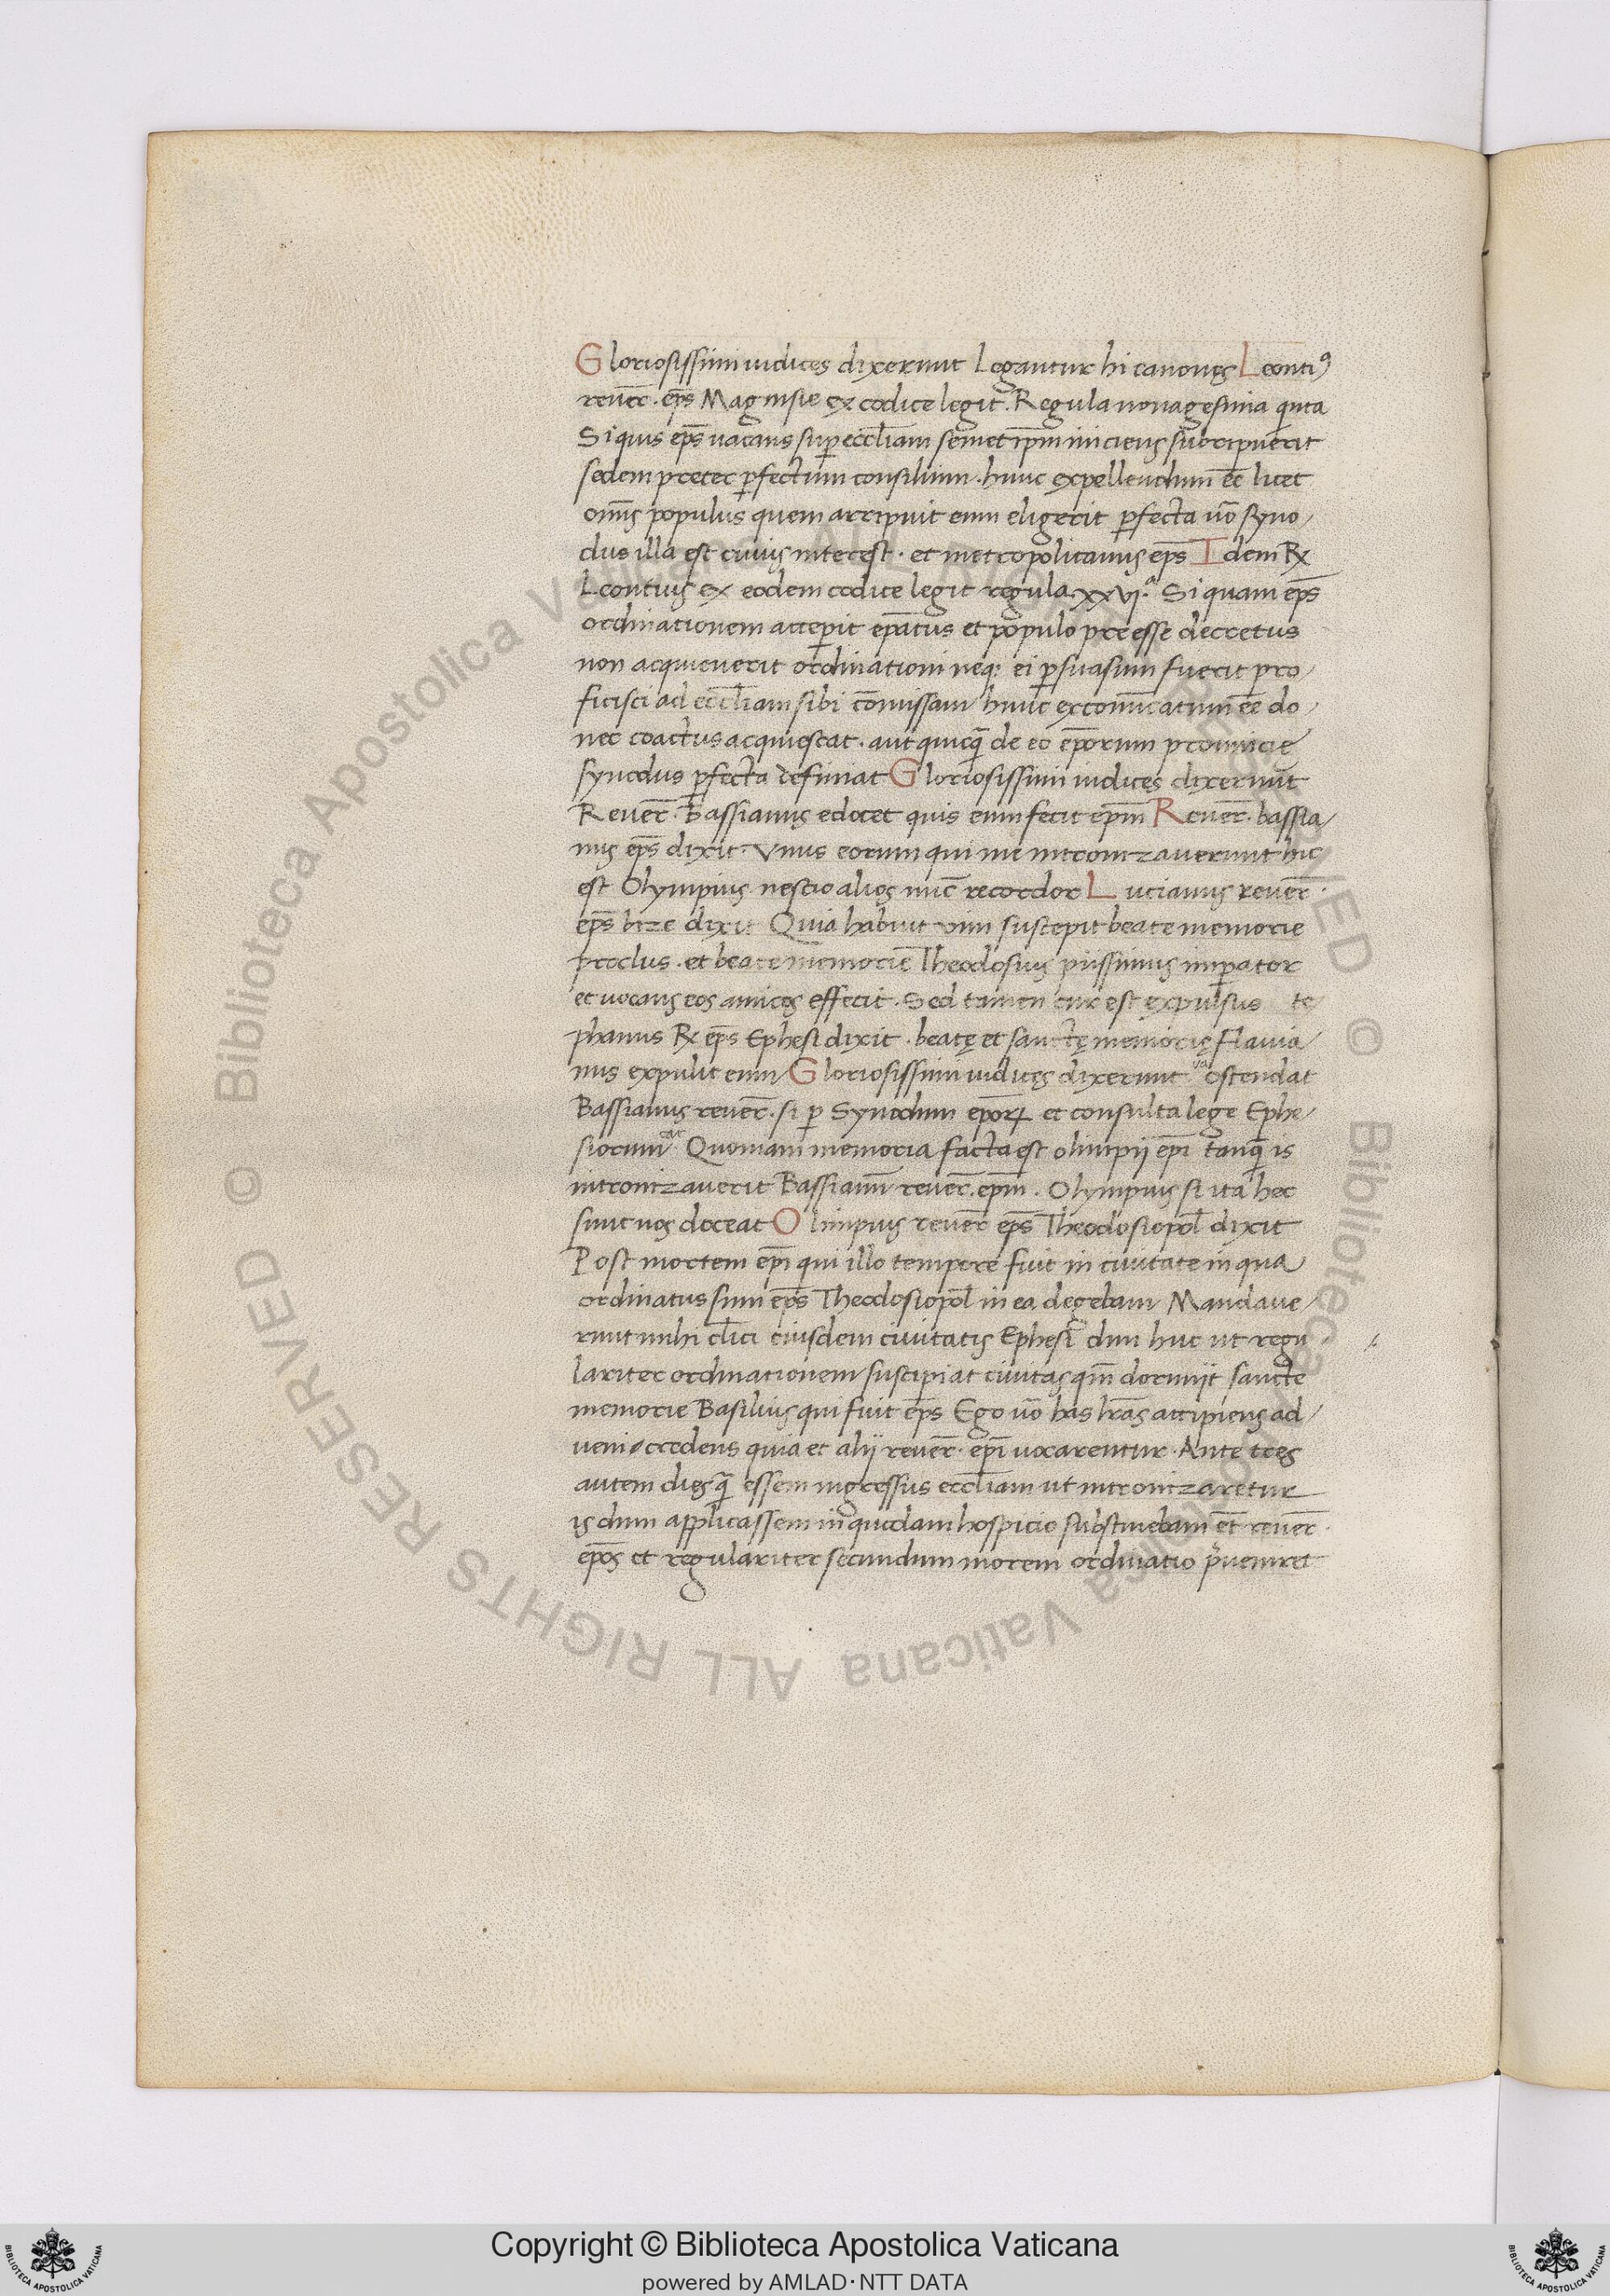 Gloriosissimi iudices dixerunt Legantur hi canones Leontiꝰ
reuer̄. ep̄s Magnisie ex codice legit. Regula nonagesima qnta
Si quis ep̄s uacans suꝑ eccl̄iam semet ip̄m iniciens subripuerit
sedem preter ꝑfectum consilium. hunc expellendum ēe licet
om̄is populus quem arripuit eum eligerit ꝑfecta uō syno/
dus illa est cuius interest. et metropolitanus ep̄s Idem R̄x
Leontius ex eodem codice legit regula xxvjᵃ. Si quam ep̄s
ordinationem acceꝑit ep̄atus et populo preesse decretus
non acquieuerit ordinationi neq; ei ꝑsuasum fuerit pro/
ficisci ad eccl̄iam sibi cōmissam hunc excom̄unicatum ēe do/
nec coactus acquiescat. aut quicq̄ de eo ep̄orum prouincię
synodus ꝑfecta definiat Gloriosissimi iudices dixerunt
Reuer̄. Bassianus edocet quis eum fecit ep̄m Reuer̄. bassia/
nus ep̄s dixit. Vnus eorum qui me intronizauerunt hic
est Olympius nescio alios nūc recordor Lucianus reuer̄.
ep̄s bize dixit Quia habuit uim suscepit beate memorie
proclus. et beate memorie Theodosius piissimus imꝑator
et uocans eos amicos effecit. Sed tamen cur est expulsus te/
phanus Rx ep̄s Ephesi dixit. beatę et sanctę memorię Flauia/
nus expulit eum Gloriosissimi iudices dixerunt va ostendat
Bassianus reuer̄. si ꝑ Synodum ep̄oꝝ et consulta lege Ephe/
siorum Quoniam memoria facta est olimpij ep̄i tanq̄ is
intronizauerit Bassianū reuer̄. ep̄m. Olympius si ita hec
sunt nos doceat Olimpius reuer̄ ep̄s Theodosiopol̄ dixit
Post mortem ep̄i qui illo tempore fuit in ciuitate in qua
ordinatus sum ep̄s Theodosiopol̄ in ea degebam Mandaue/
runt mihi cl̄ici eiusdem ciuitatis Ephesi dum huc ut regu/
lariter ordinationem suscipiat ciuitas qm̄ dormijt sancte
memorie Basilius qui fuit ep̄s Ego uō has lr̄as accipiens ad/
ueni credens quia et alij reuer̄. ep̄i uocarentur. Ante tres
autem dies q̄ essem ingressus eccl̄iam ut intronizaretur
is dum applicassem in quodam hospicio substinebam et̄ reuer̄.
ep̄os et regulariter secundum morem ordinatio ꝓueniret
Copyright © Biblioteca Apostolica Vaticana
powered by AMLAD·NTT DATA